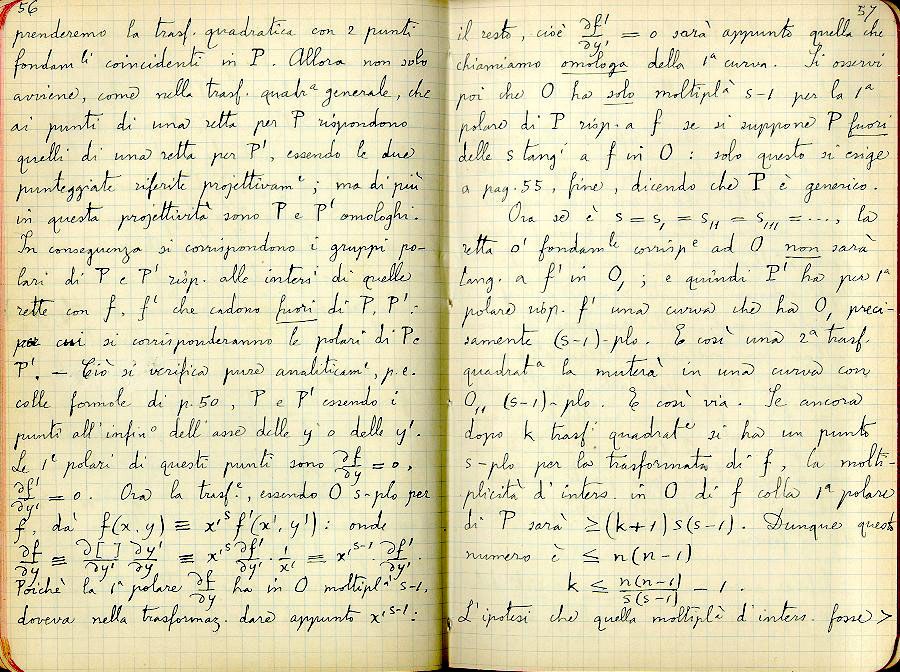 56
prenderemo la trasf. quadratica con 2 punti
fondam.li coincidenti in P. Allora non solo
avviene, come nella trasf. quadr.a generale, che
ai punti di una retta per P rispondono
quelli di una retta per P', essendo le due
punteggiate riferite projettivam.e; ma di più
in questa projettività sono P e P' omologhi.
In conseguenza si corrispondono i gruppi po-
lari di P e P' risp. alle inters.i di quelle
rette con f, f' che cadono fuori di P, P':
si corrisponderanno le polari di P e
P'. — Ciò si verifica pure analiticam.e, p.e.
colle formole di p. 50, P e P' essendo i
punti all'infin.o dell'asse delle y o delle y'.
Le 1.e polari di questi punti sono ∂f/∂y = 0,
∂f'/∂y' = 0. Ora la trasf.e, essendo O s-plo per
f, dà f(x,y) ≡ x'^s f'(x',y'): onde
∂f/∂y ≡ ∂[ ]/∂y' ∂y'/∂y ≡ x'^s ∂f'/∂y' · 1/x' ≡ x'^{s-1} · ∂f'/∂y'.
Poichè la 1.a polare ∂f/∂y ha in O moltipl.à s-1,
doveva nella trasformaz. dare appunto x'^{s-1}:
57
il resto, cioè ∂f'/∂y' = 0 sarà appunto quella che
chiamiamo omologa della 1.a curva. Si osservi
poi che O ha solo moltipl.à s-1 per la 1.a
polare di P risp. a f se si suppone P fuori
delle s tang.i a f in O: solo questo si esige
a pag. 55, fine, dicendo che P è generico.
Ora se è s = s, = s,, = s,,, = ..., la
retta o' fondam.le corrisp.e ad O non sarà
tang. a f' in O, ; e quindi P' ha per 1.a
polare risp. f' una curva che ha O, preci-
samente (s-1)-plo. E così una 2.a trasf.
quadrat.a la muterà in una curva con
O,, (s-1)-plo. E così via. Se ancora
dopo k trasf.i quadrat.e si ha un punto
s-plo per la trasformata di f, la molti-
plicità d'inters. in O di f colla 1.a polare
di P sarà ≥ (k+1) s(s-1). Dunque questo
numero è ≤ n(n-1)
k ≤ n(n-1)/s(s-1) - 1.
L'ipotesi che quella moltipl.à d'inters. fosse >